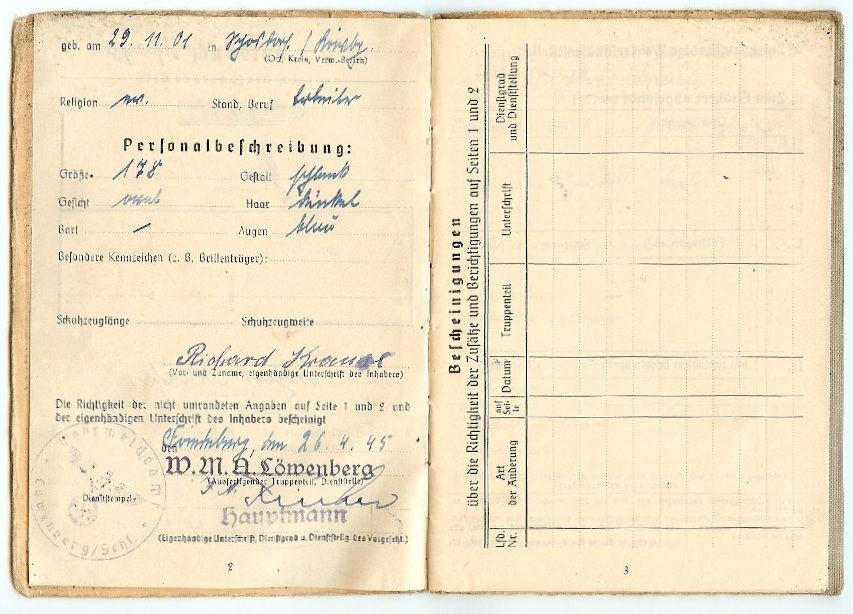 geb. am 29.11.01 in
(Ort, Kreis, Verw.-Bezirk)
Religion ev. Stand, Beruf Arbeiter
Personalbeschreibung:
Größe 178 Gestalt schlank
Gesicht oval Haar dunkel
Bart — Augen blau
Besondere Kennzeichen (z. B. Brillenträger):
Schuhzeuglänge Schuhzeugweite
Richard
(Vor- und Zuname, eigenhändige Unterschrift des Inhabers)
Die Richtigkeit der nicht umrandeten Angaben auf Seite 1 und 2 und
der eigenhändigen Unterschrift des Inhabers bescheinigt
den 26.4.45
W.M.A. Löwenberg
(Ausfertigender Truppenteil, Dienststelle)
Dienststempel
Hauptmann
(Eigenhändige Unterschrift, Dienstgrad u. Dienststellg. des Vorgesetzt.)
Wehrmeldeamt
Löwenberg/Schl.
2
Bescheinigungen
über die Richtigkeit der Zusätze und Berichtigungen auf Seiten 1 und 2
Lfd. Nr.
Art der Änderung
auf Seite
Datum
Truppenteil
Unterschrift
Dienstgrad und Dienststellung
3